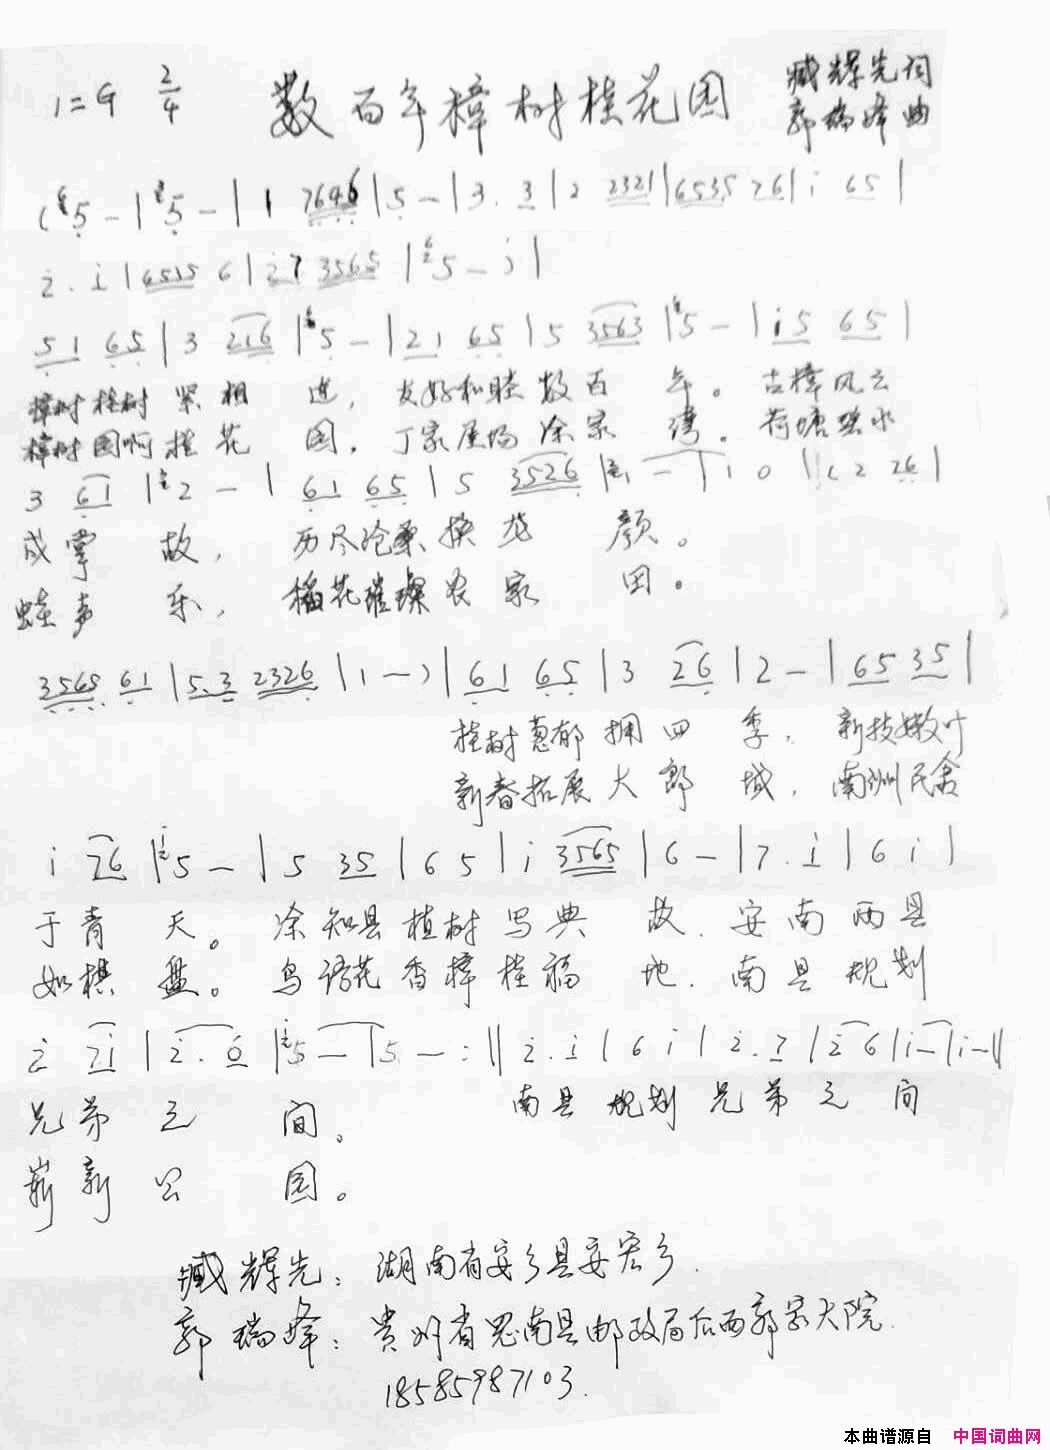 1=G 2/4 数百年樟树桂花园 臧辉先词
郭瑞峰曲
(5 - | 5 - | 1 7646 | 5 - | 3. 3 | 2 2321 | 6535 76 | i 65 |
2. i | 6515 6 | i7 3565 | 5 - i |
51 65 | 3 216 | 5 - | 21 65 | 5 3563 | 5 - | i5 65 |
樟树桂树 紧相 连, 友好和睦 数百 年。 古樟风云
樟树园啊 桂花 园, 丁家屋场 涂家 湾。 荷塘碧水
3 61 | 2 - | 61 65 | 5 3526 | 1 - | 1 0 | ( 2 26 |
成掌 故, 历尽沧桑 换龙 颜。
蛙声 乐, 稻花璀璨 农家 田。
3565 61 | 5.3 2326 | 1 - ) | 61 65 | 3 26 | 2 - | 65 35 |
桂树葱郁 拥四 季, 新枝嫩叶
新春拓展 大郡 城, 南洲民舍
i 76 | 5 - | 5 35 | 6 5 | i 3565 | 6 - | 7. i | 6 i |
于青 天。 涂知县 植树 写典 故. 安南两县
如棋 盘。 鸟语花香 樟桂福 地. 南县规划
2 7i | 2. 6 | 5 - | 5 - :|| 2. i | 6 i | 2. 7 | 2 6 | i - | i - ||
兄弟之 间。 南县规划兄弟之间
崭新公 园。
臧辉先: 湖南省安乡县安宏乡.
郭瑞峰: 贵州省思南县邮政局后西郭家大院.
18585987103.
本曲谱源自 中国词曲网